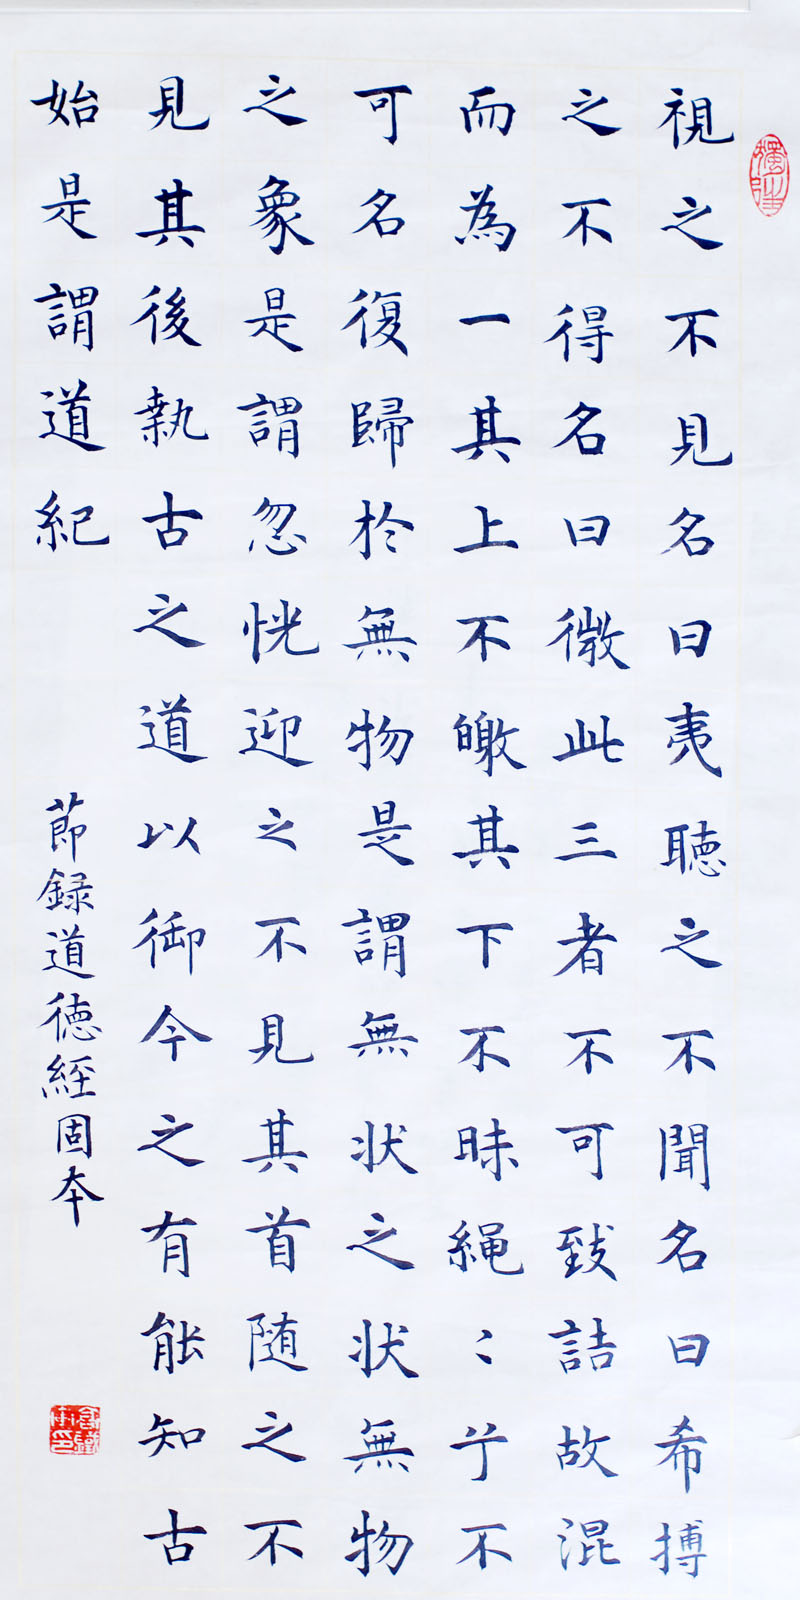 視之不見名曰夷聴之不聞名曰希搏
之不得名曰微此三者不可致詰故混
而為一其上不皦其下不昧縄〻兮不
可名復歸於無物是謂無状之状無物
之象是謂忽恍迎之不見其首随之不
見其後執古之道以御今之有能知古
始是謂道紀
節録道徳經固本